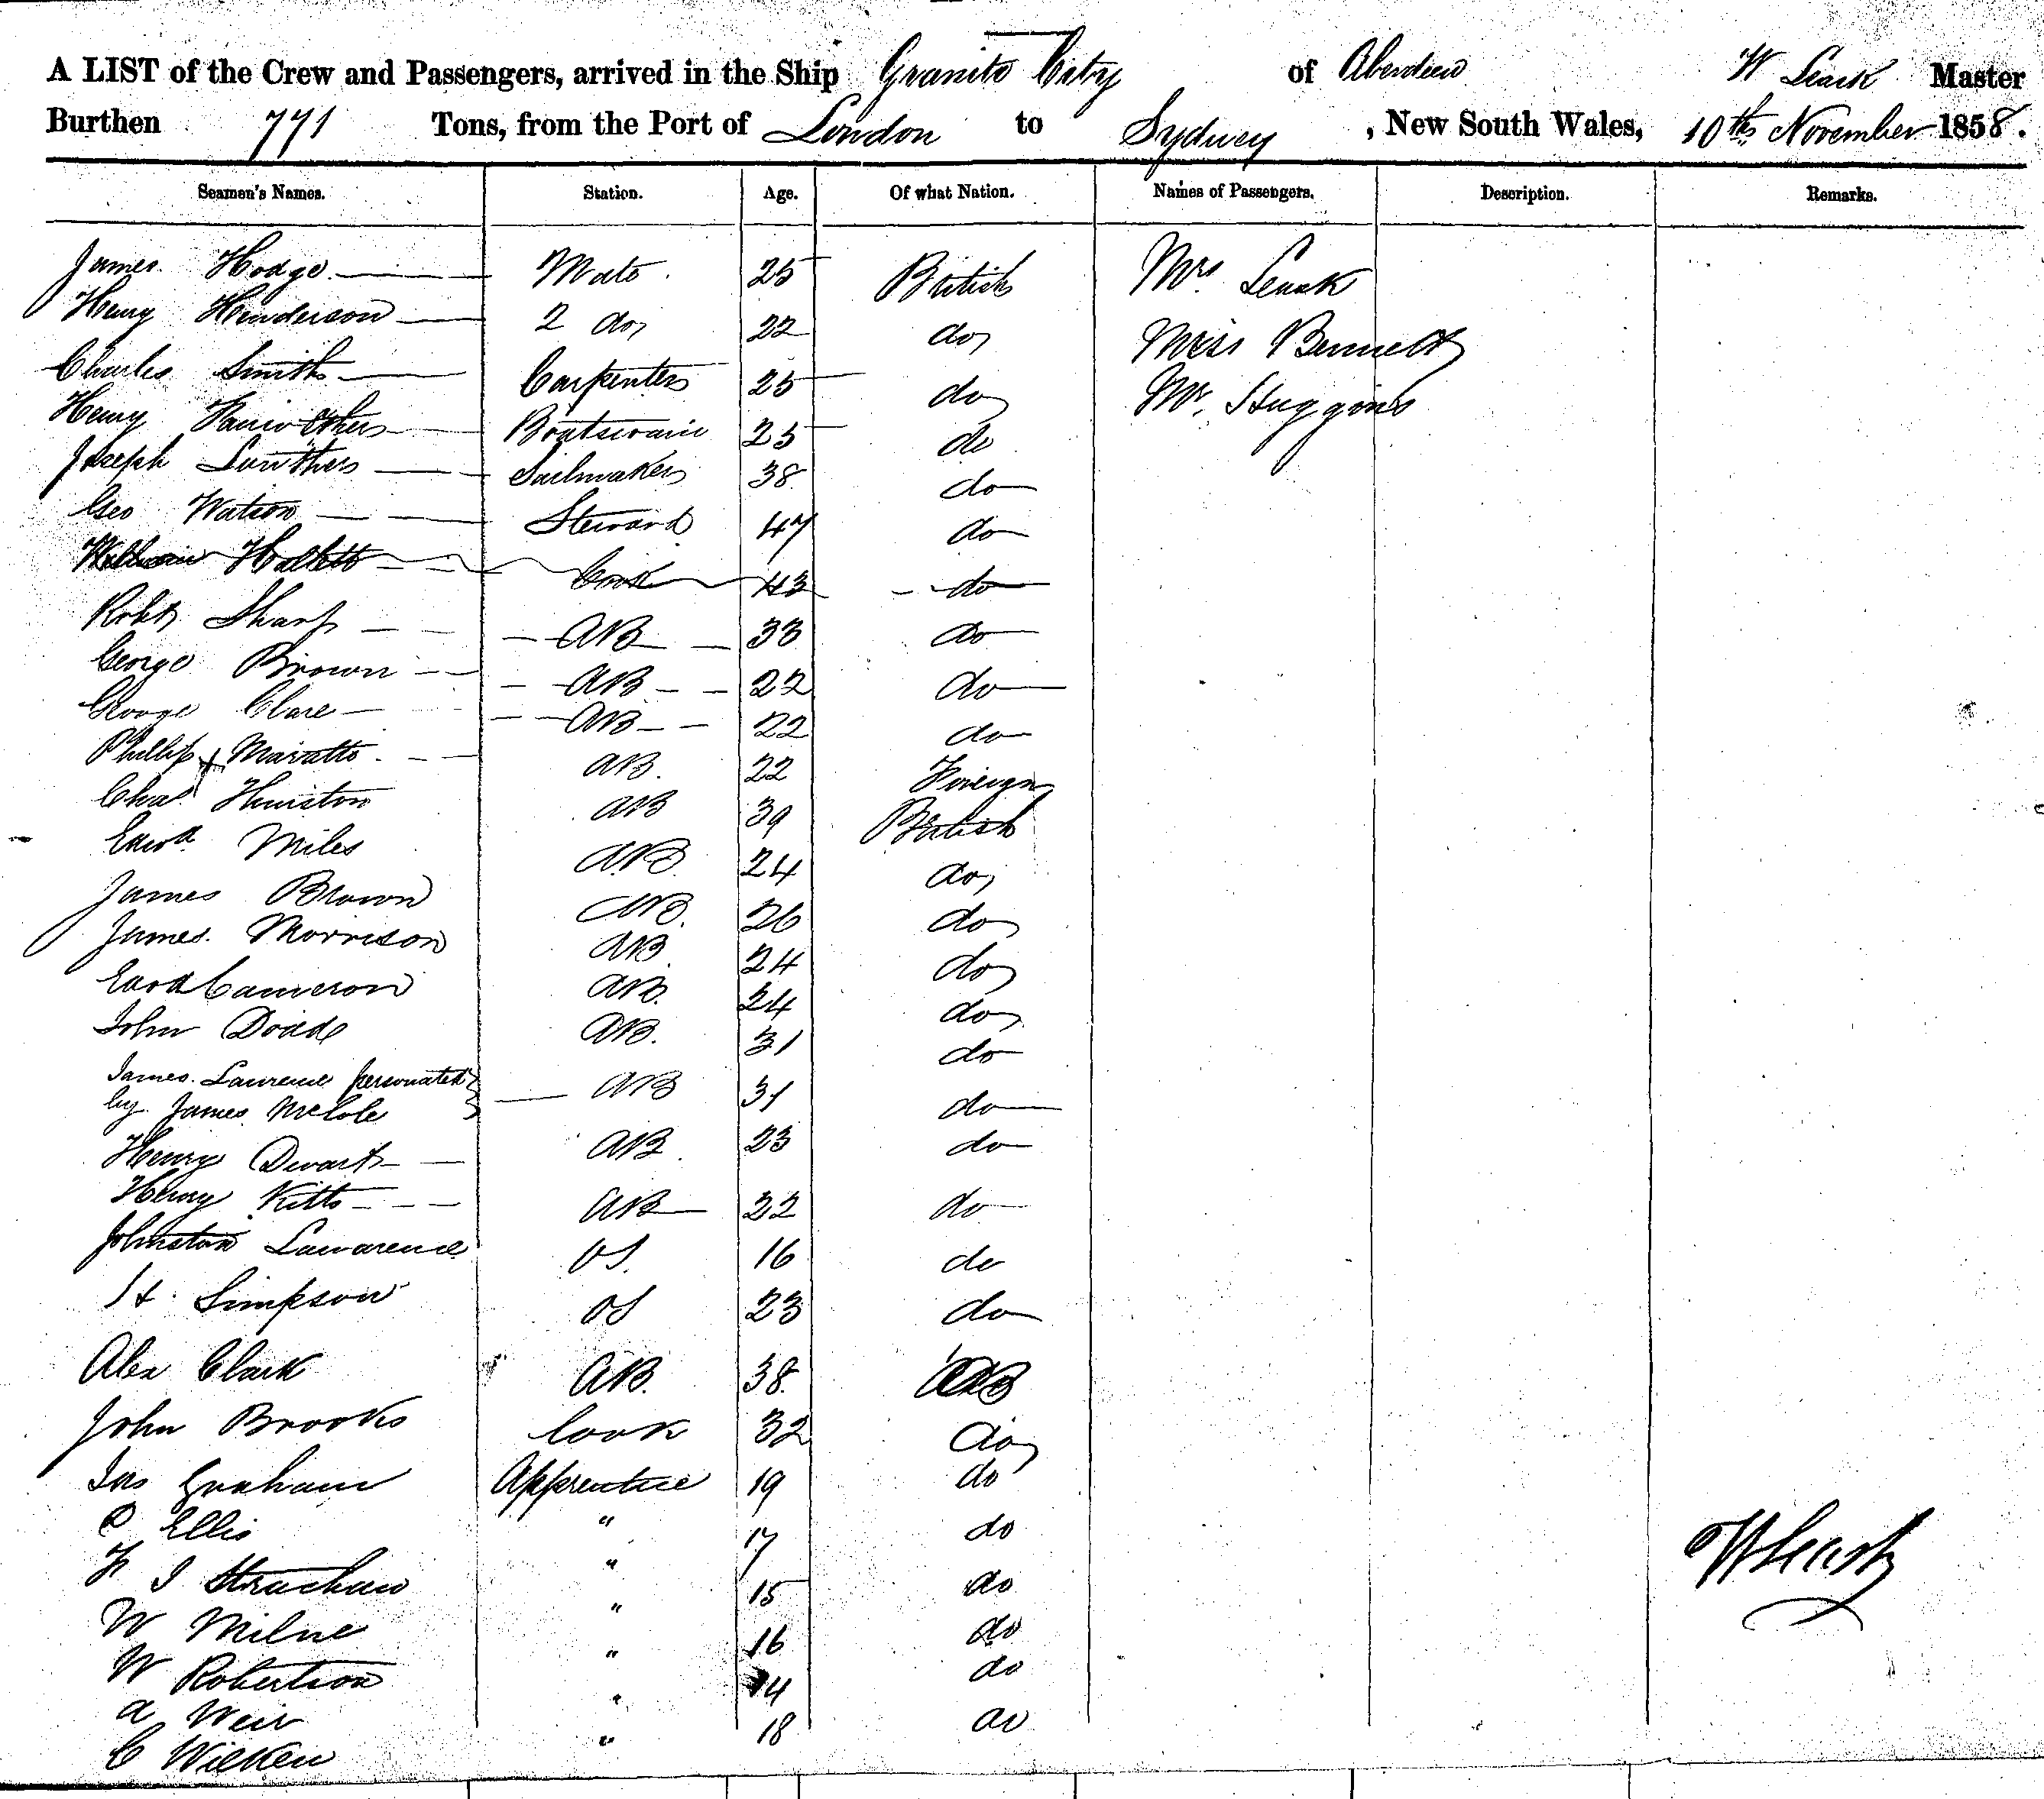 A LIST of the Crew and Passengers, arrived in the Ship Granite City of Aberdeen W Leask Master
Burthen 771 Tons, from the Port of London to Sydney, New South Wales, 10th November 1858.
Seamen's Names. Station. Age. Of what Nation. Names of Passengers. Description. Remarks.
James Hodge Mate 25 British Mrs Leask
Henry Henderson 2 do 22 do Miss Bennett
Charles Smith Carpenter 25 do Mr. Huggins
Henry Boatswain 25 do
Joseph Sailmaker 38 do
Geo Watson Steward 47 do
William Hallett Cook 43 do
Robt Sharp AB 33 do
George Brown AB 22 do
George Clare AB 22 do
Phillip Maratto AB 22 Foreign
Chas Hunston AB 39 British
Edwd Miles AB 24 do
James Brown AB 26 do
James Morrison AB 24 do
Ewd Cameron AB 24 do
John Dodds AB 31 do
James Lawrence personated
by James McCole AB 31 do
Henry Dwart AB 23 do
Henry Kitts AB 22 do
Johnston Lawarence OS 16 do
H. Simpson OS 23 do
Alex Clark AB 38
John Brooks Cook 32 do
Jas Graham Apprentice 19 do
Ellis " 17 do
J Strachan " 15 do
W Milne " 16 do
W Robertson " 14 do
A Weir " 18 do
C Wilken "
W Leask